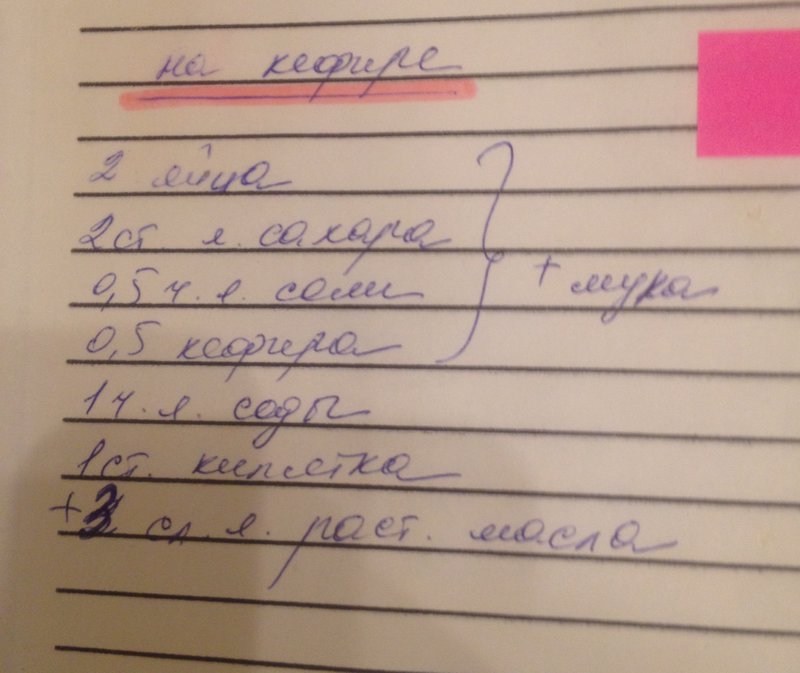 на кефире
2 яйца
2 ст. л. сахара
0,5 ч. л. соли
+ мука
0,5 кефира
1 ч. л. соды
1 ст. кипятка
+3 ст. л. раст. масла